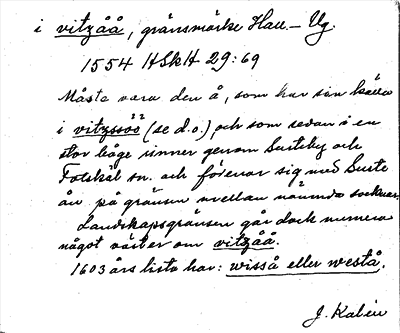 i vitzåå, gränsmärke Hall–Vg.
1554 HSkH 29:69
Måste vara den å, som har sin källa
i vitzsöö (se d.o.) och som sedan i en
stor båge rinner genom Surteby och
Fotskäl sn. och förenar sig med Surte
ån på gränsen mellan nämnda socknar.
Landskapsgränsen går dock numera
något väster om vitzåå.
1603 års lista har: wisså eller westå.
J. Kalén